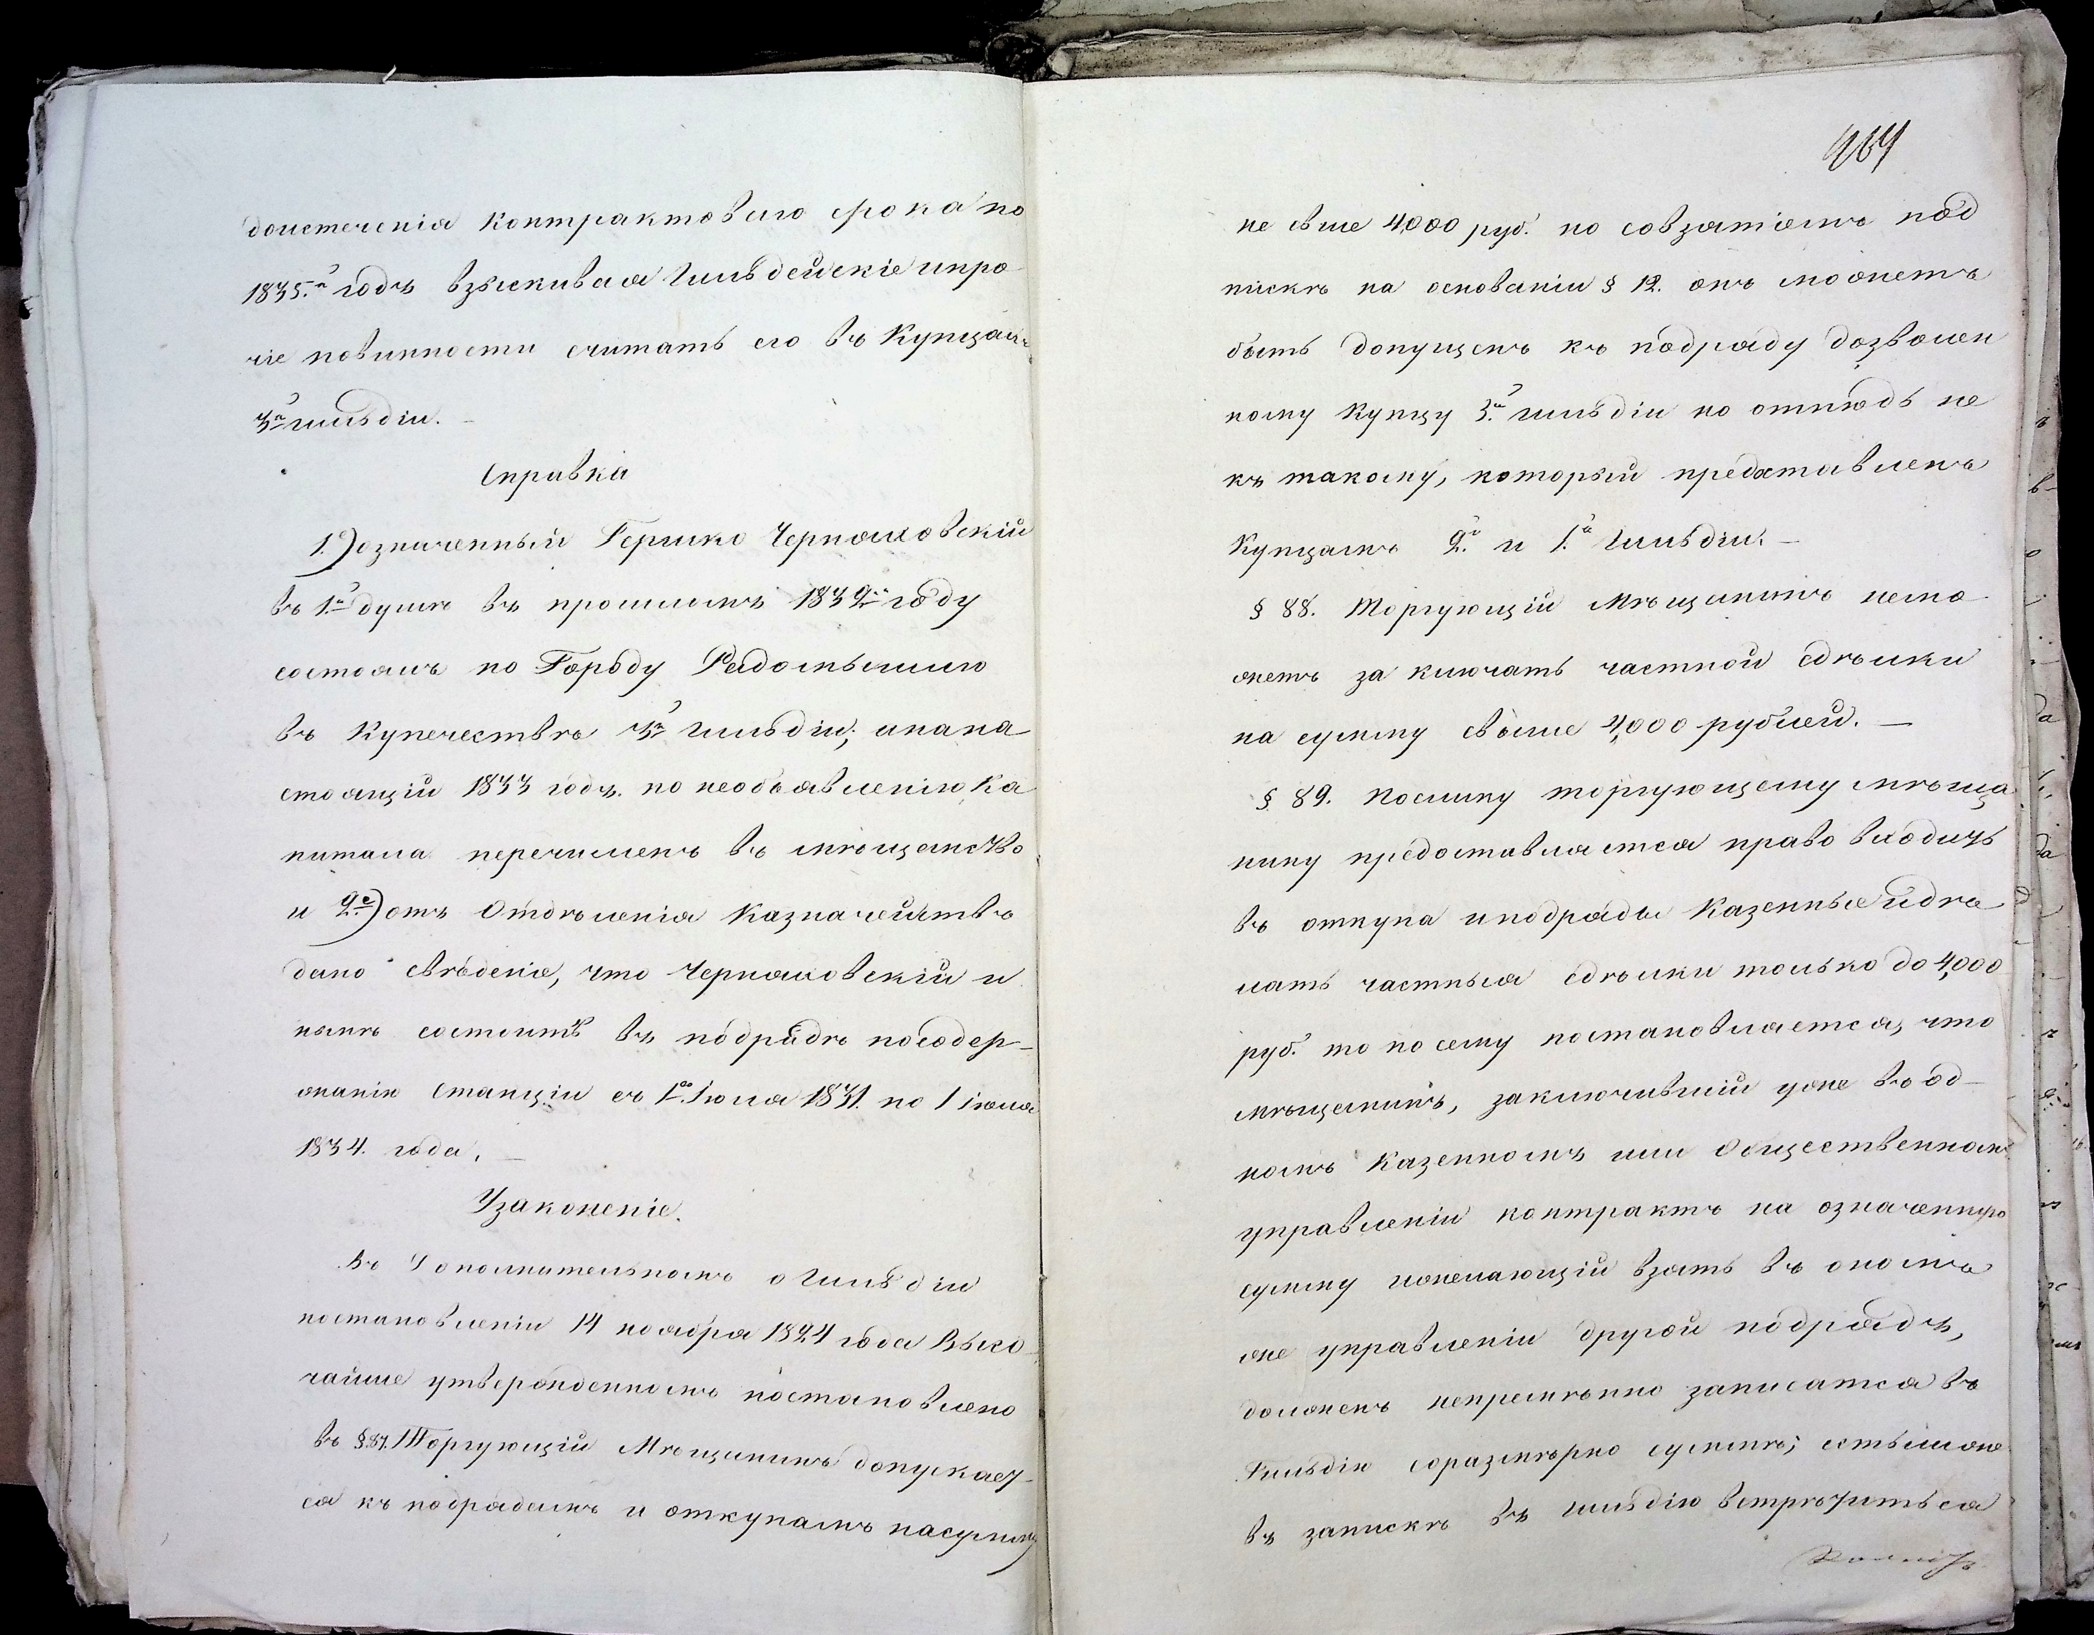 доистеченія контрактоваго срока по
1835.й годъ взыскивая Гильдейскіе ипро
чіе повинности считать его въ Купцахъ
3й гильдіи. —
Справка
1.) означенный Гершко Черняховскій
въ 1.й душѣ въ прошломъ 1832м году
состоялъ по Городу Радомыслю
въ Купечествѣ 3й гильдіи; инана
стоящій 1833 годъ. по необъявленію Ка
питала перечисленъ въ мѣщанство
и 2е.) отъ Отдѣленія Казначействъ
дано свѣденіе, что Черняховскій и
нынѣ состоитъ въ подрядѣ посодер–
жанію Станціи съ 1го Іюля 1831. по 1 іюля
1834. года. —
Узаконеніе.
Въ Дополнительномъ о Гильдіи
постановленіи 14 ноября 1824 года Высо
чайше утвержденномъ постановлено
въ §.87. Торгующій Мѣщанинъ допускает
ся къ подрядамъ и откупамъ насумму
464
не свше 4,000 руб. но совзятіемъ под
писки на основаніи § 12. онъ можетъ
быть допущенъ къ подряду дозволен
ному Купцу 3.й гильдіи но отнюдь не
къ такому, который предоставленъ
Купцамъ 2.й и 1.й Гильдіи. —
§ 88. Торгующій Мѣщанинъ немо
жетъ за ключать частной сдѣлки
на сумму свыше 4,000 рублей. —
§ 89. Поелику торгующему мѣща
нину предоставляется право входить
въ откупа иподряды Казенные идѣ
лать частныя сдѣлки только до 4,000
руб. то по сему постановляется, что
мѣщанинъ, заключившій уже въ од–
номъ Казенномъ или Общественномъ
управленіи контрактъ на означенную
сумму ижелающій взять въ ономъ
же управленіи другой подрядъ,
долженъ непремѣнно записатся въ
Гильдію соразмѣрно суммѣ; естьлиже
въ запискѣ въ гильдію встрѣтиться